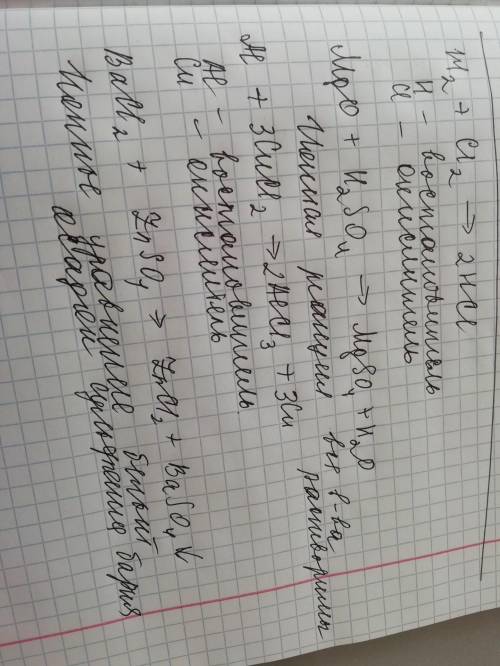 H₂ + Cl₂ → 2HCl
H - восстановитель
Cl - окислитель
MgO + H₂SO₄ → MgSO₄ + H₂O
Ионная реакция все в-ва
растворимы
Al + 3CuCl₂ → 2AlCl₃ + 3Cu
Al - восстановитель
Cu - окислитель
BaCl₂ + ZnSO₄ → ZnCl₂ + BaSO₄↓
Ионное уравнение белый
осадок сульфата бария